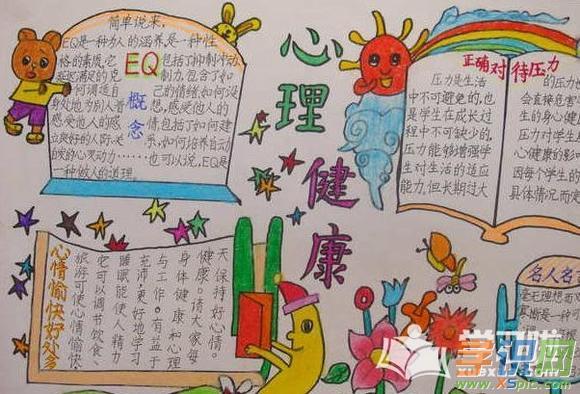 心理健康
简单说来,
EQ是一种为人的涵养,是一种性
格的素质,它包括了抑制冲动
延迟满足的克制力,包含了如
何调适自己的情绪,如何设
身处地为别人着想,感受他人的
感受他人的感情,包括了如何建
立良好的人际关系,如何培养自动
自发的心灵动力……也可以说,EQ是
一种做人的道理.
EQ
概念
正确对待压力
压力是生活
中不可避免的,也
是学生在成长过
程中不可缺少的,
压力能够增强学
生对生活的适应
能力,但长期过大
的压力也
会直接危害
生的身心健
压力对学生
心健康的影
因每个学生的
具体情况而定
心情愉快好处多
旅游可使心情愉快
它可以调节饮食
睡眠能使人精力
充沛,更好地学习
与工作。有益于
身体健康和心理
健康。请大家每
天保持好心情。
名人名
毫无理想而
学识网
www.XSpic.com